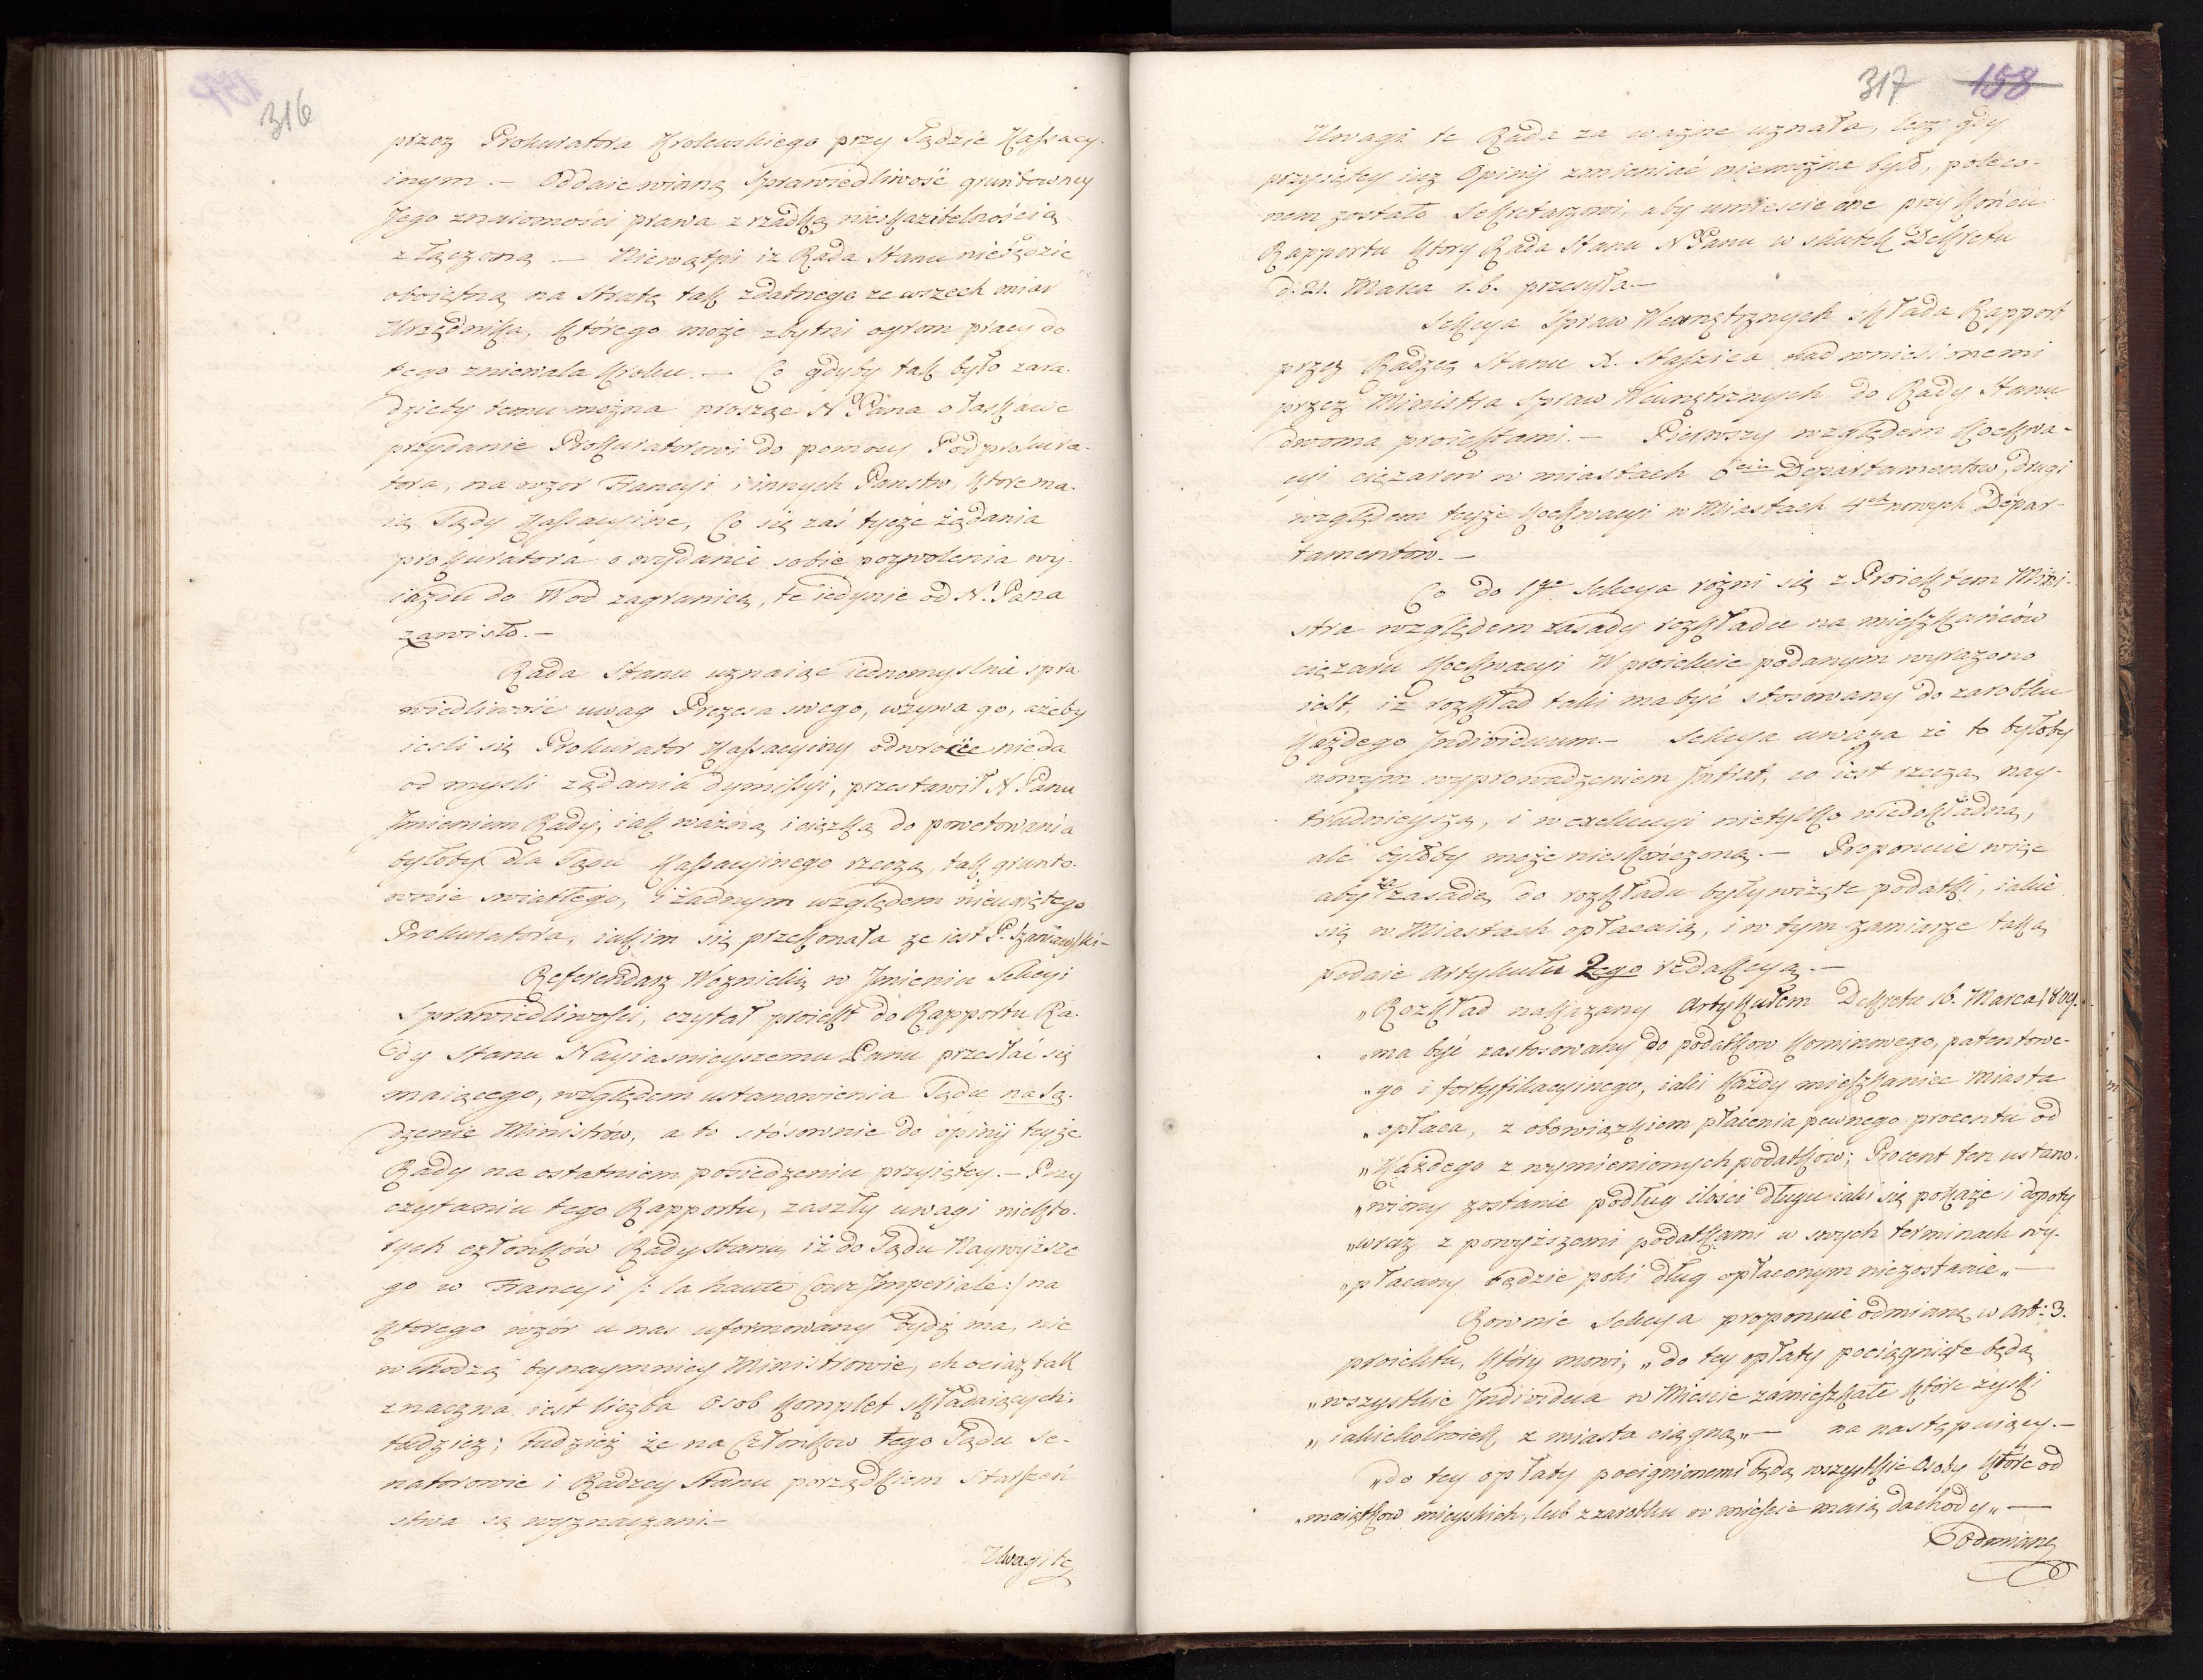 316
przez Prokuratora Krolewskiego przy Sądzie Kassacy-
inym. — Oddaie winną Sprawiedliwość gruntowney
Jego znaiomości prawa z rzadką nieskazitelnością
złączoną — Niewątpi iz Rada Stanu niebędzie
oboiętną na stratę tak zdatnego ze wszech miar
Urzędnika, którego może zbytni ogrom pracy do
tego zniewala kroku. — Co gdyby tak było zara-
dzićby temu można prosząc N Pana o łaskawe
przydanie Prokuratorowi do pomocy Podprokura-
tora, na wzor Francyi i innych Panstw, ktore ma-
ią Sądy Kassacyine, Co się zaś tycze żądania
prokuratora o wydanie sobie pozwolenia wy-
iazdu do Wod zagranicę, te iedynie od N. Pana
zawisło. —
Rada Stanu uznaiąc iednomyslnie spra
wiedliwość uwag Prezesa swego, wzywa go, ażeby
iesli się Prokurator Kassacyiny odwrocić nieda
od mysli żądania dymissyi, przestawił N Panu
Jmieniem Rady, iak ważną i ciężką do powetowania
byłoby dla Sądu Kassacyinego rzeczą, tak grunto-
wnie swiatłego, i żadnym względem nieugiętego
Prokuratora, iakim się przekonała ze iest P. Szaniawski —
Referendarz Woznicki w Jmieniu Sekcyi
Sprawiedliwości, czytał proiekt do Rapportu Ra-
dy Stanu Nayiasnieyszemu Panu przesłać się
maiącego, względem ustanowienia Sądu na Są-
dzenie Ministrów, a to stósownie do opinij teyże
Rady na ostatniem posiedzeniu przyiętey. — Przy
czytaniu tego Rapportu, zaszły uwagi niektó-
rych członków Rady Stanu, iż do Sądu Naywyższe
go w Francyi /: la haute Cour Jmperiale :/ na
ktorego wzór u nas uformowany bydź ma, nie
wchodzą bynaymniey Ministrowie, chociaz tak
znaczna iest liczba Osob Komplet składaiących;
tudziez; tudzież że na Członkow tego Sądu Se-
natorowie i Radzcy Stanu porządkiem starszeń
stwa są wyznaczani —
Uwagi te
317 158
Uwagi te Rada za wazne uznała, lecz gdy
przyiętey iuz Opinij zmieniać niemożna było, poleco-
nem zostało Sekretarzowi, aby umieścił one przy końcu
Rapportu ktory Rada Stanu N Panu w skutek Dekretu
d. 21. Marca r. b. przesyła —
Sekcya Spraw Wewnętrznych składa Rapport
przez Radzcę Stanu X. Staszica nad wniesionemi
przez Ministra Spraw Wewnętrznych do Rady Stanu
dwoma proiektami. — Pierwszy względem Kochwa-
cyi ciężarow w miastach 6ciu Departamentow, drugi
względem teyże kochwacyi w Miastach 4ch nowych Depar-
tamentów. —
Co do 1go Sekcya rożni się z Proiektem Mini-
stra względem zasady rozkładu na mieszkańców
ciężaru kochwacyi W proiekcie podanym wyrazono
iest, iż rozkład taki ma być stosowany do zarobku
każdego Jndividuum — Sekcya uważa ze to byłoby
nowym wyprowadzeniem Jntrat, co iest rzeczą nay-
trudnieyszą, i w exekucyi nietylko niedokładną,
ale byłoby może nieskończoną. — Proponuie więc
aby za zasadę do rozkładu były wzięte podatki, iakie
się w Miastach opłacaią, i w tym zamiarze taką
podaie Artykułu 2ego redakcyą. —
„Rozkład nakazany Artykułem Dekretu 16. Marca 1809.
„ma być zastosowany do podatkow kominowego, patentowe-
„go i fortyfikacyinego, iaki każdy mieszkaniec Miasta
„opłaca, z obowiązkiem płacenia pewnego procentu od
„każdego z wymienionych podatków; Procent ten ustano-
„wiony zostanie podług ilości długu iaki się pokaże i dopoty
„wraz z powyższemi podatkami w swych terminach wy-
„płacany będzie poki dług opłaconym niezostanie„ —
Rownie Sekcya proponuie odmianę w Art: 3.
proiektu, ktory mowi, „do tey opłaty pociągnięte będą
„wszystkie Jndividua w Mieście zamieszkałe które zyski
„iakiekolwiek z miasta ciągną„ — na następuiący. —
„do tey opłaty pociągnionemi będą wszystkie Osoby które od
„maiątkow mieyskich, lub z zarobku w mieście maią dochody„ —
Odmianę